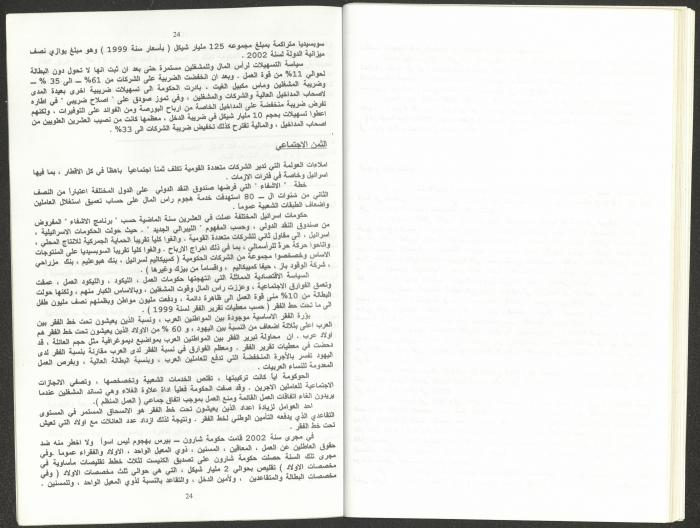 24
سوبسيديا متراكمة بمبلغ مجموعه 125 مليار شيكل ( بأسعار سنة 1999 ) وهو مبلغ يوازي نصف
ميزانية الدولة لسنة 2002 .
سياسة التسهيلات لرأس المال وللمشغلين مستمرة حتى بعد ان ثبت انها لا تحول دون البطالة
لحوالي 11% من قوة العمل . وبعد ان انخفضت الضريبة على الشركات من 61% ــ الى 35 % ــ
وضريبة المشغلين وماس مكبيل الغيت ، بادرت الحكومة الى تسهيلات ضريبية اخرى بعيدة المدى
لاصحاب المداخيل العالية والشركات والمشغلين ، وفي تموز صودق على " اصلاح ضريبي " في اطاره
تفرض ضريبة منخفضة على المداخيل الخاصة من ارباح البورصة ومن الفوائد على التوفيرات ، ولكنهم
اعطوا تسهيلات بحجم 10 مليار شيكل في ضريبة الدخل ، معظمها كانت من نصيب العشرين العلويين من
اصحاب المداخيل ، والمالية تقترح كذلك تخفيض ضريبة الشركات الى 33% .
الثمن الاجتماعي
املاءات العولمة التي تدير الشركات متعددة القومية تكلف ثمناً اجتماعيا باهظا في كل الاقطار ، بما فيها
اسرائيل وخاصة في فترات الازمات .
خطة " الاشفاء " التي فرضها صندوق النقد الدولي على الدول المختلفة اعتباراً من النصف
الثاني من سنوات ال ــ 80 استهدفت خدمة هجوم راس المال على حساب تعميق استغلال العاملين
واضعاف الطبقات الشعبية عموماً .
حكومات اسرائيل المختلفة عملت في العشرين سنة الماضية حسب " برنامج الاشفاء " المفروض
من صندوق النقد الدولي ، وحسب المفهوم " الليبرالي الجديد " . حيث حولت الحكومات الاسرائيلية ،
اسرائيل ، الى مقاول ثاني للشركات متعددة القومية . والغوا كلياً تقريباً الحماية الجمركية للانتاج المحلي ،
واتاحوا حركة حرة للرأسمالي ، بما في ذلك اخراج الارباح . والغوا كليا تقريبا السوبسيديا على المنتوجات
الاساس وخصخصوا مجموعة من الشركات الحكومية ( كميكاليم لسرائيل ، بنك هبوعليم ، بنك مزراحي
، شركة الوقود باز ، حيفا كميكاليم ، واقساما من بيزك وغيرها ) .
السياسة الاقتصادية المماثلة التي انتهجتها حكومات العمل ، الليكود ، والليكود العمل ، عمقت
وتعمق الفوارق الاجتماعية ، وعززت راس المال وقوت المشغلين ، وبالاساس الكبار منهم ، ولكنها حولت
البطالة من 10% من قوة العمل الى ظاهرة دائمة ، ودفعت مليون مواطن وبظمنهم نصف مليون طفل
الى ما تحت خط الفقر ( حسب معطيات تقرير الفقر لسنة 1999 ) .
بؤرة الفقر الاساسية موجودة بين المواطنين العرب ، ونسبة الذين يعيشون تحت خط الفقر بين
العرب اعلى بثلاثة اضعاف من النسبة بين اليهود ، و 60 % من الاولاد الذين يعيشون تحت خط الفقر هم
اولاد عرب . ان محاولة تبرير الفقر بين المواطنين العرب بمواضيع ديموغرافية مثل حجم العائلة ، قد
دحضت في معطيات تقرير الفقر . ومعظم الفوارق في نسبة الفقر لدى العرب مقارنة بنسبة الفقر لدى
اليهود تفسر بالأجرة المنخفضة التي تدفع للعاملين العرب ، وبنسبة البطالة العالية ، وبفرص العمل
المعدومة للنساء العربيات .
الحكومية اياً كانت تركيبتها ، تقلص الخدمات الشعبية وتخصصها ، وتصفي الانجازات
الاجتماعية للعاملين الاجرين . وقد صفت الحكومة فعلياً اداة علاوة الغلاء وهي تساند المشغلين عندما
يريدون الغاء اتفاقات العمل القائمة ومنع العمل بموجب اتفاق جماعي ( العمل المنظم ).
احد العوامل لزيادة اعداد الذين يعيشون تحت خط الفقر هو الانسحاق المستمر في المستوى
التقاعدي الذي يدفعه التأمين الوطني لخط الفقر . ونتيجة لذلك ازداد عدد العائلات مع اولاد التي تعيش
تحت خط الفقر .
في مجرى سنة 2002 قامت حكومة شارون ــ بيرس بهجوم ليس اسوأ ولا اخطر منه ضد
حقوق العاطلين عن العمل ، المعاقين ، المسنين ، ذوي المعيل الواحد ، الاولاد والفقراء عموما .وفي
مجرى تلك السنة حصلت حكومة شارون على تصديق الكنيست لثلاث خطط تقليصات مأساوية في
مخصصات الاولاد ( تقليص بحوالي 2 مليار شيكل ، التي هي حوالي ثلث مخصصات الاولاد ( وفي
مخصصات البطالة والمتقاعدين ، ولأمين الدخل ، والتقاعد بالنسبة لذوي المعيل الواحد ، وتلمسنين .
24